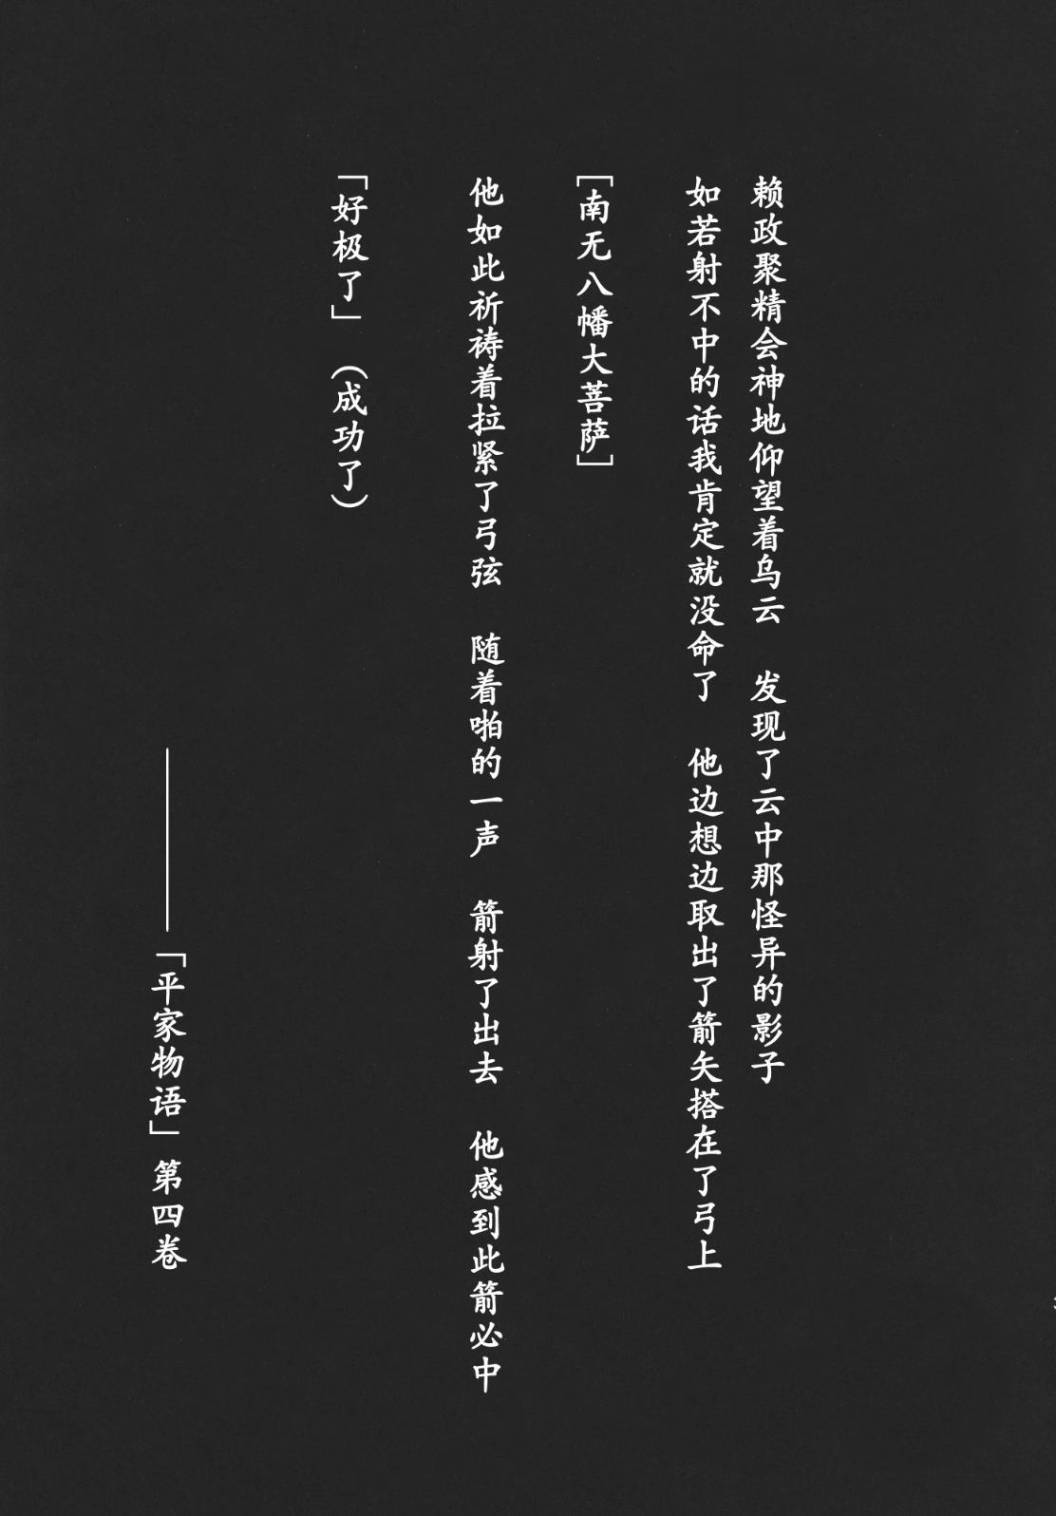 赖政聚精会神地仰望着乌云　发现了云中那怪异的影子
如若射不中的话我肯定就没命了　他边想边取出了箭矢搭在了弓上
[南无八幡大菩萨]
他如此祈祷着拉紧了弓弦　随着啪的一声　箭射了出去　他感到此箭必中
「好极了」（成功了）
———「平家物语」第四卷